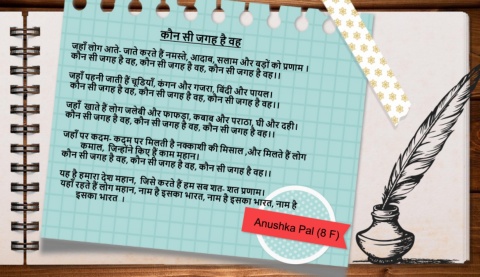 कौन सी जगह है वह
जहाँ लोग आते- जाते करते हैं नमस्ते, आदाब, सलाम और बड़ों को प्रणाम ।
कौन सी जगह है वह, कौन सी जगह है वह, कौन सी जगह है वह।।
जहाँ पहनी जाती हैं चूडियाँ, कंगन और गजरा, बिंदी और पायल।
कौन सी जगह है वह, कौन सी जगह है वह, कौन सी जगह है वह।।
जहाँ खाते हैं लोग जलेबी और फाफड़ा, कबाब और पराठा, घी और दही।
कौन सी जगह है वह, कौन सी जगह है वह, कौन सी जगह है वह।।
जहाँ पर कदम- कदम पर मिलती है नक्काशी की मिसाल ,और मिलते हैं लोग
कमाल, जिन्होंने किए हैं काम महान।
कौन सी जगह है वह, कौन सी जगह है वह, कौन सी जगह है वह।।
यह है हमारा देश महान, जिसे करते हैं हम सब शत- शत प्रणाम।
यहाँ रहते हैं लोग महान, नाम है इसका भारत, नाम है इसका भारत, नाम है
इसका भारत ।
Anushka Pal (8 F)